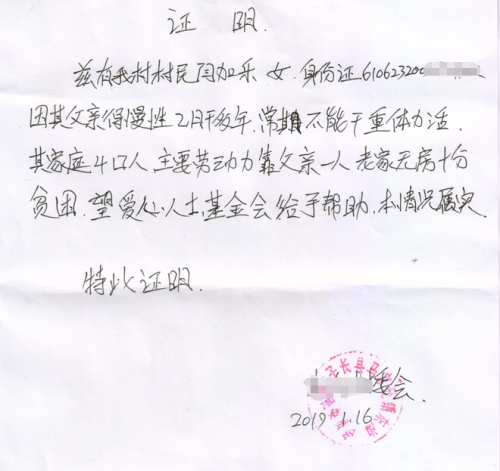 证 明.
兹有我村村民闫加乐 女.身份证610623200
因其父亲得慢性乙肝多年.常期不能干重体力活.
其家庭4口人 主要劳动力靠父亲一人 老家无房十分
贫困.望爱心人士.基金会给予帮助.本情况属实.
特此证明.
委会.
2019 1.16
子长县